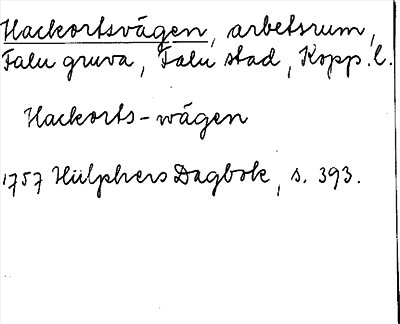 Hackortsvägen, arbetsrum,
Falu gruva, Falu stad, Kopp. l.
Hackorts-wägen
1757 Hülphers Dagbok, s. 393.